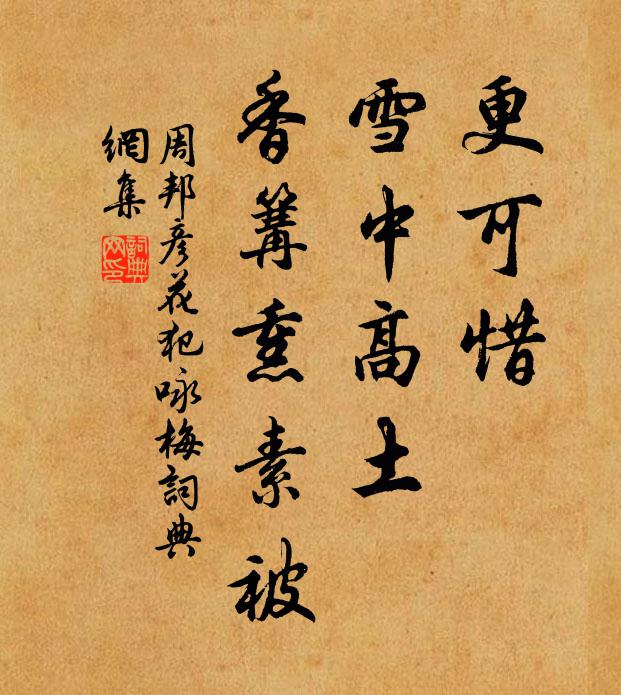 更可惜
雪中高土
香篝熏素被
周邦彦花犯咏梅詞典
網集
詞典
网印